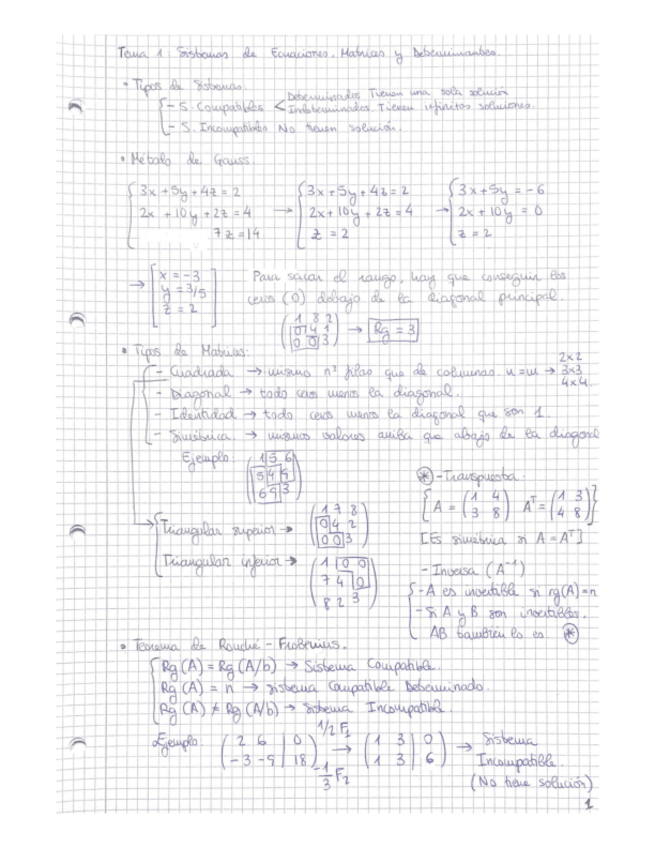 Tema 1: Sistemas de Ecuaciones. Matrices y Determinantes.
• Tipos de Sistemas.
- S. Compatibles < Determinados Tienen una sola solución
Indeterminados. Tienen infinitas soluciones.
- S. Incompatibles No tienen solución.
• Método de Gauss.
3x + 5y + 4z = 2    3x + 5y + 4z = 2    3x + 5y = -6
2x + 10y + 2z = 4 → 2x + 10y + 2z = 4 → 2x + 10y = 0
7z = 14    z = 2    z = 2
→ x = -3    Para sacar el rango, hay que conseguir los
y = 3/5    ceros (0) debajo de la diagonal principal.
z = 2
1 8 2
0 4 1 → Rg = 3
0 0 3
• Tipos de Matrices:
- Cuadrada → mismo nº filas que de columnas. n=n → 2x2
3x3
4x4
- Diagonal → todo ceros menos la diagonal.
- Identidad → todo ceros menos la diagonal que son 1.
- Simétrica. → mismos valores arriba que abajo de la diagonal
Ejemplo:
1 5 6
5 4 9
6 9 3
Triangular superior →
1 7 8
0 4 2
0 0 3
Triangular inferior →
1 0 0
7 4 0
8 2 3
* - Transpuesta.
A = (1 4    Aᵀ = (1 3
3 8)    4 8)
[Es simétrica si A = Aᵀ]
- Inversa (A⁻¹)
- A es invertible si rg(A) = n
- Si A y B son invertibles.
AB también lo es *
• Teorema de Rouché - Frobenius.
Rg (A) = Rg (A/b) → Sistema Compatible.
Rg (A) = n → Sistema Compatible Determinado.
Rg (A) ≠ Rg (A/b) → Sistema Incompatible.
Ejemplo: (2 6 | 0    1/2 F₁    (1 3 | 0    → Sistema
-3 -9 | 18)    -1/3 F₂ →    1 3 | 6)    Incompatible.
(No tiene solución)
1